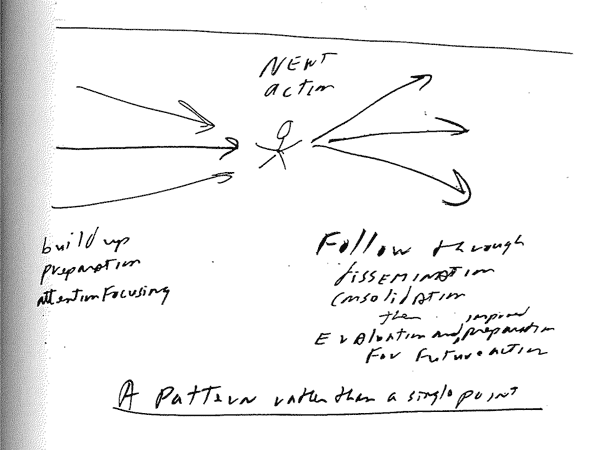 NEWT
action
build up
preparation
attention focusing
Follow through
dissemination
consolidation
then improved
Evaluation and preparation
For future action
A pattern rather than a single point